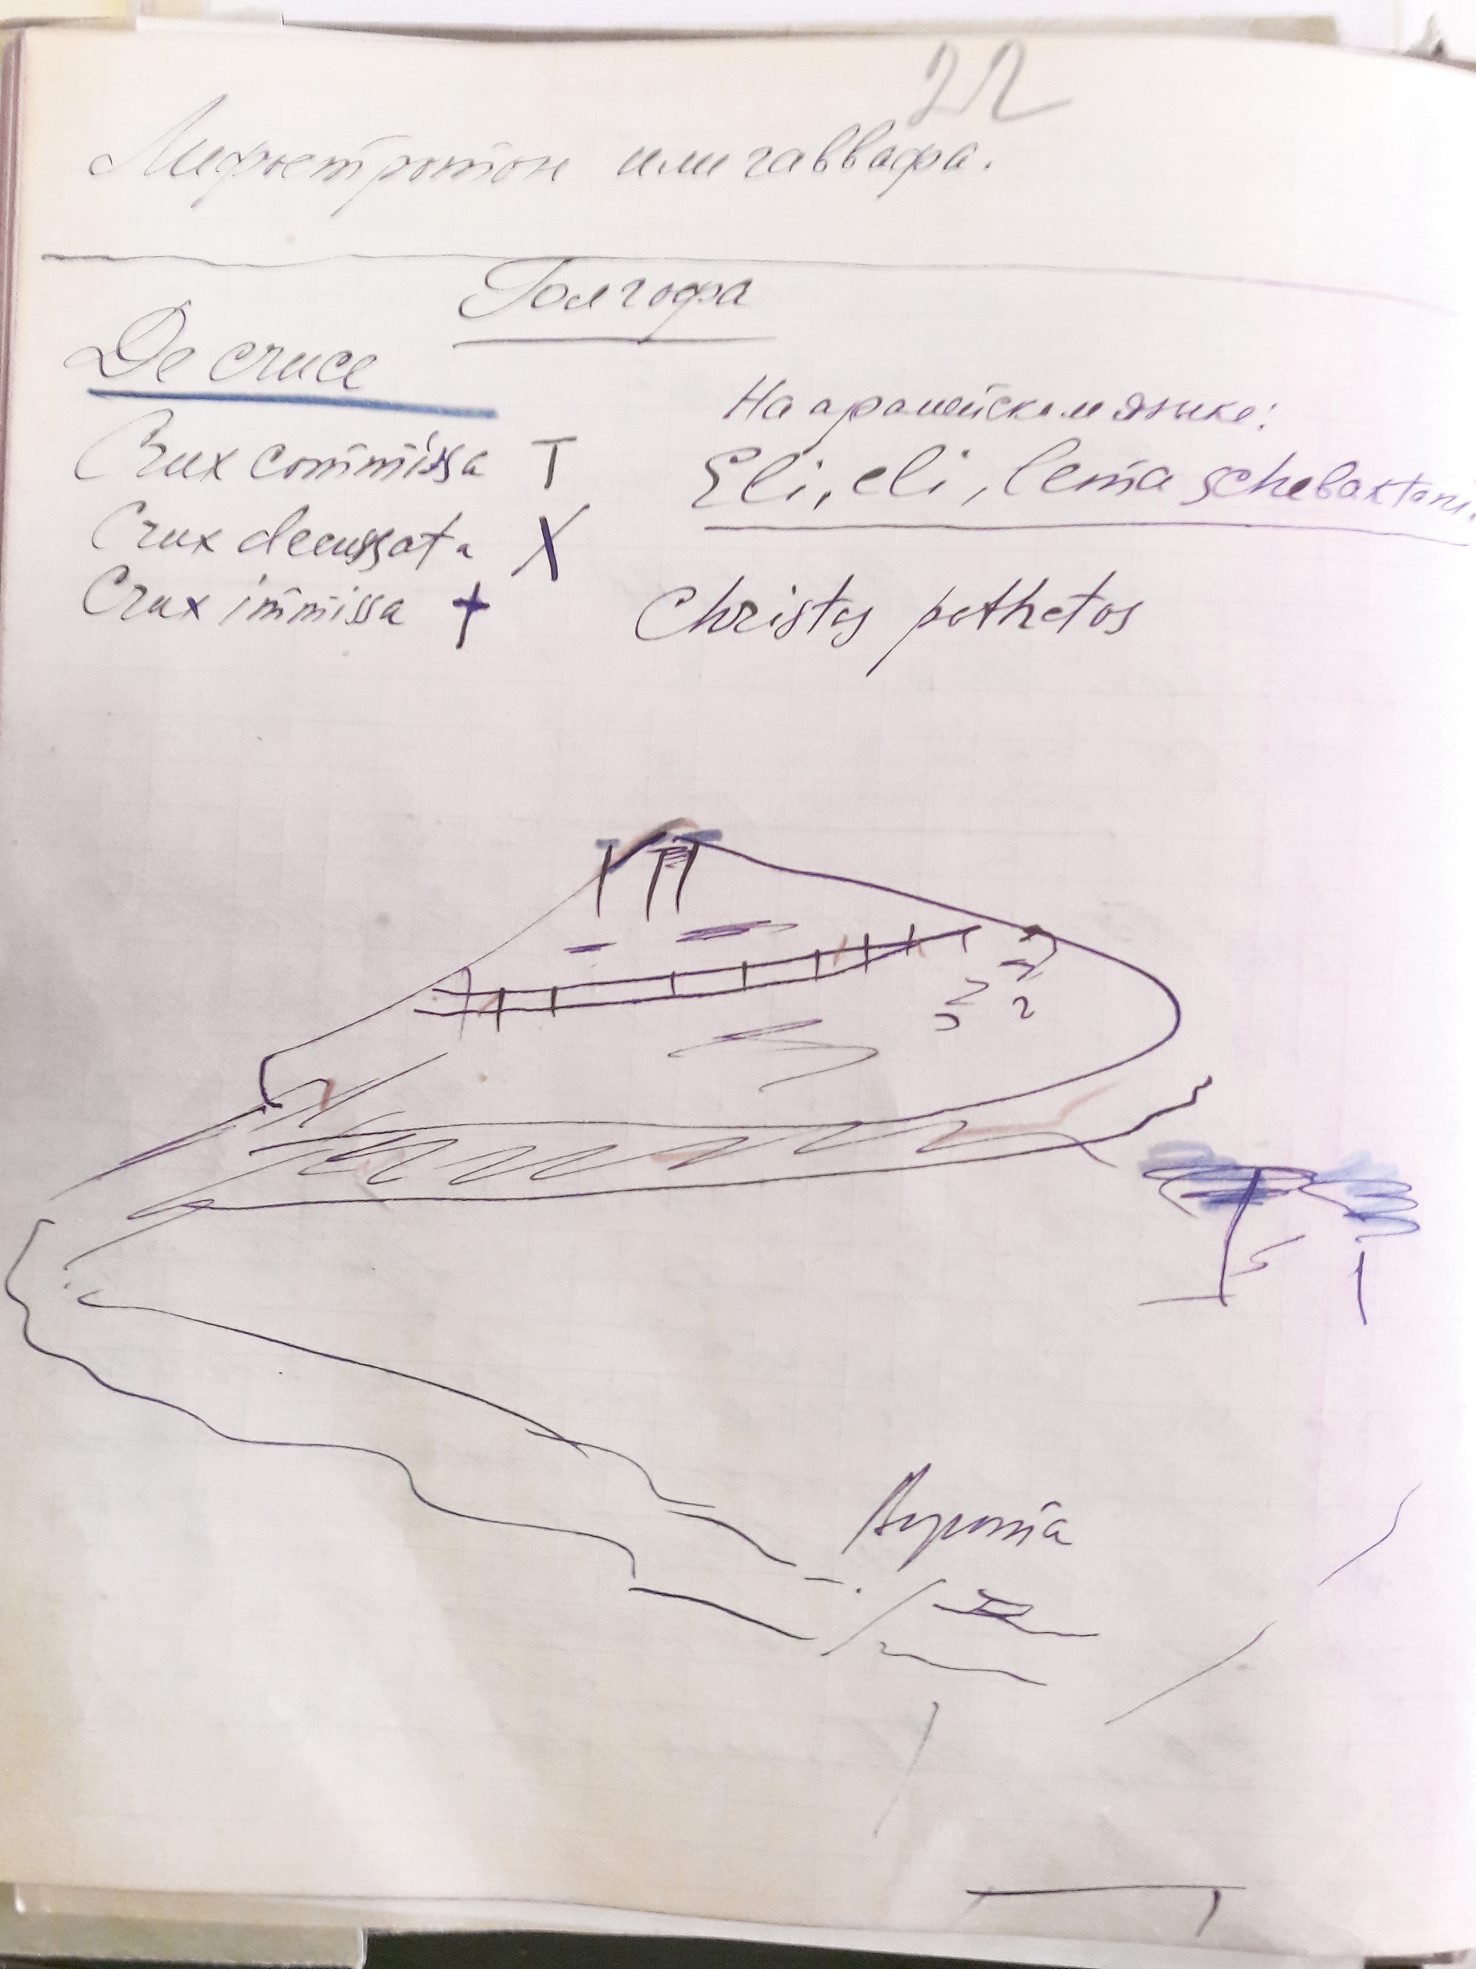 22
Лифостротон или гаввафа.
Голгофа
De cruce
Crux commissa T
Crux decussata X
Crux immissa †
На арамейском языке:
Eli, eli, lema schebaktani.
Christus pathetos